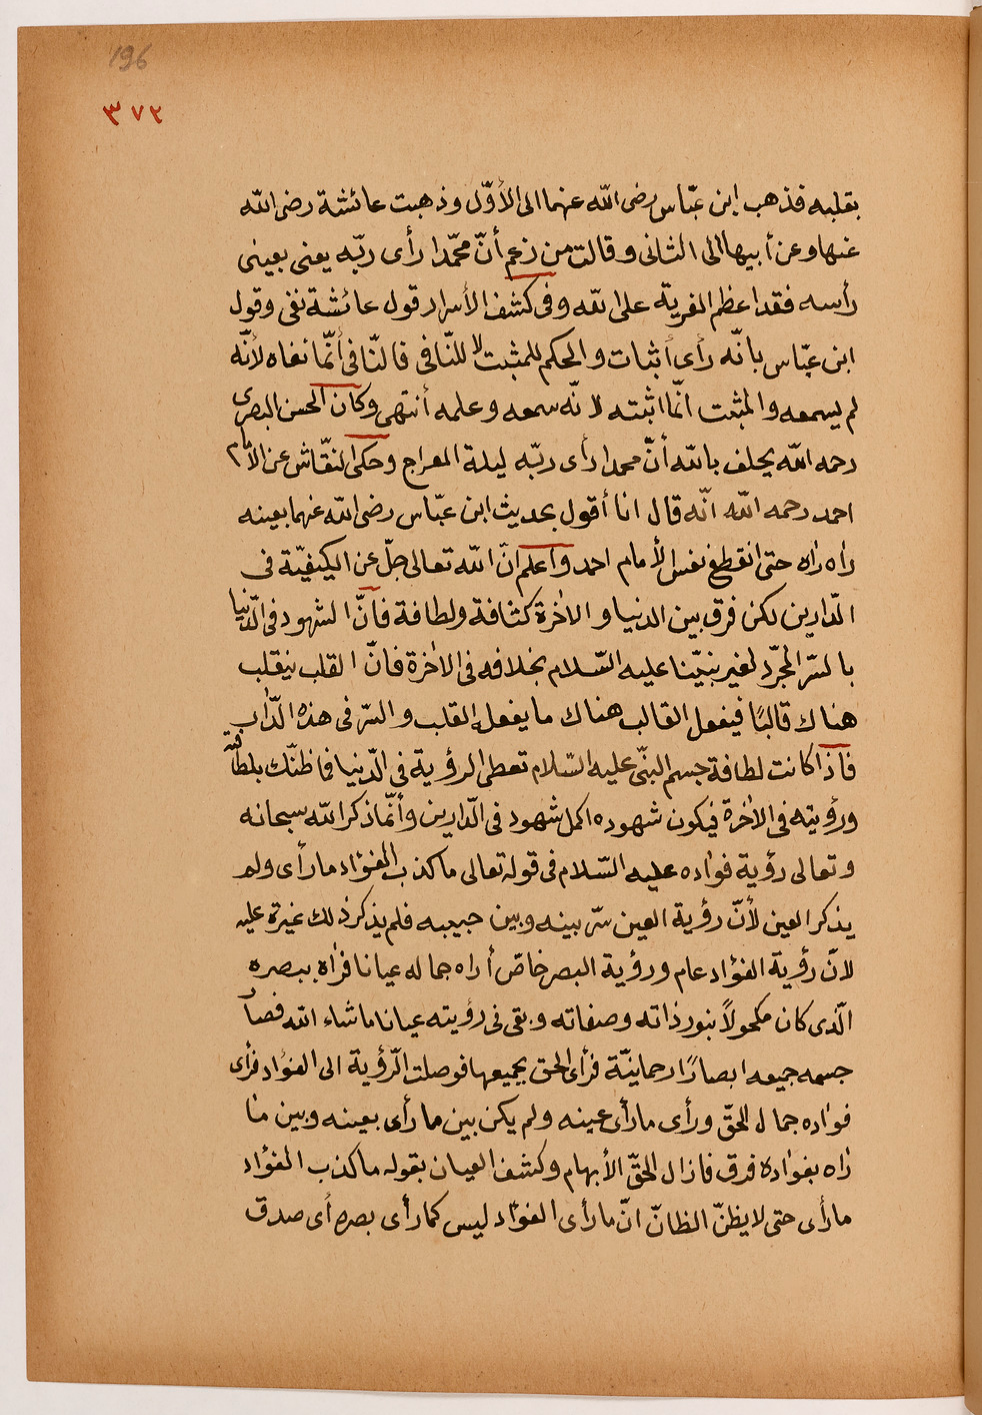 196
٣٧٢
بقلبه فذهب ابن عبّاس رضى الله عنهما الى الأوّل وذهبت عائشة رضى الله
عنها وعن أبيها الى الثانى وقالت من زعم أنّ محمّدا رأى ربّه يعنى بعينى
رأسه فقد اعظم الفرية على الله وفى كشف الأسرار قول عائشة نفى وقول
ابن عبّاس بانّه رأى أثبات والحكم للمثبت لا للنّافى فالنّافى أنّما نفاه لأنّه
لم يسمعه والمثبت انّما اثبته لانّه سمعه وعلمه أنتهى وكان الحسن البصرى
رحمه الله يحلف بالله أنّ محمدا رأى ربّه ليلة المعراج وحكى النقّاش عن الأمام
احمد رحمه الله انّه قال انا أقول بحديث ابن عبّاس رضى الله عنهما بعينه
رأه رأه حتى انقطع نفس الأمام احمد واعلم انّ الله تعالى جلّ عن الكيفيّة فى
الدّارين لكن فرق بين الدنيا و الاخرة كثافة ولطافة فانّ الشهود فى الدّنيا
بالسّر المجرّد لغير نبيّنا عليه السّلام بخلافه فى الاخرة فانّ القلب ينقلب
هناك قالبًا فيفعل القالب هناك ما يفعله القلب والسّر فى هذه الدّار
فاذا كانت لطافة جسم النبىّ عليه السّلام تعطى الرؤية فى الدّنيا فما ظنّك بلطافته
ورؤيته فى الاخرة فيكون شهوده اكمل شهود فى الدّارين وأنّما ذكر الله سبحانه
وتعالى رؤية فواده عليه السّلام فى قوله تعالى ماكذب الفؤاد مارأى ولم
يذكر العين لأنّ رؤية العين سّر بينه وبين حبيبه فلم يذكر ذلك غيرة عليه
لانّ رؤية الفؤاد عام ورؤية البصر خاصّ أراه جماله عيانا فراٰه ببصره
الّذى كان مكحولاً بنور ذاته وصفاته وبقى فى رؤيته عيانا ماشاء الله فصار
جسمه جميعه ابصارًا رحمانيّة فرأى الحق بجميعها فوصلت الرّؤية الى الفؤاد فرأى
فواده جمال الحقّ ورأى مارأى عينه ولم يكن بين مارأى بعينه وبين ما
رٰاه بفواده فرق فازال الحقّ الأبهام وكشف العيان بقوله ماكذب الفؤاد
مارأى حتى لايظنّ الظانّ انّ مارأى الفؤاد ليس كمارأى بصره أى صدق